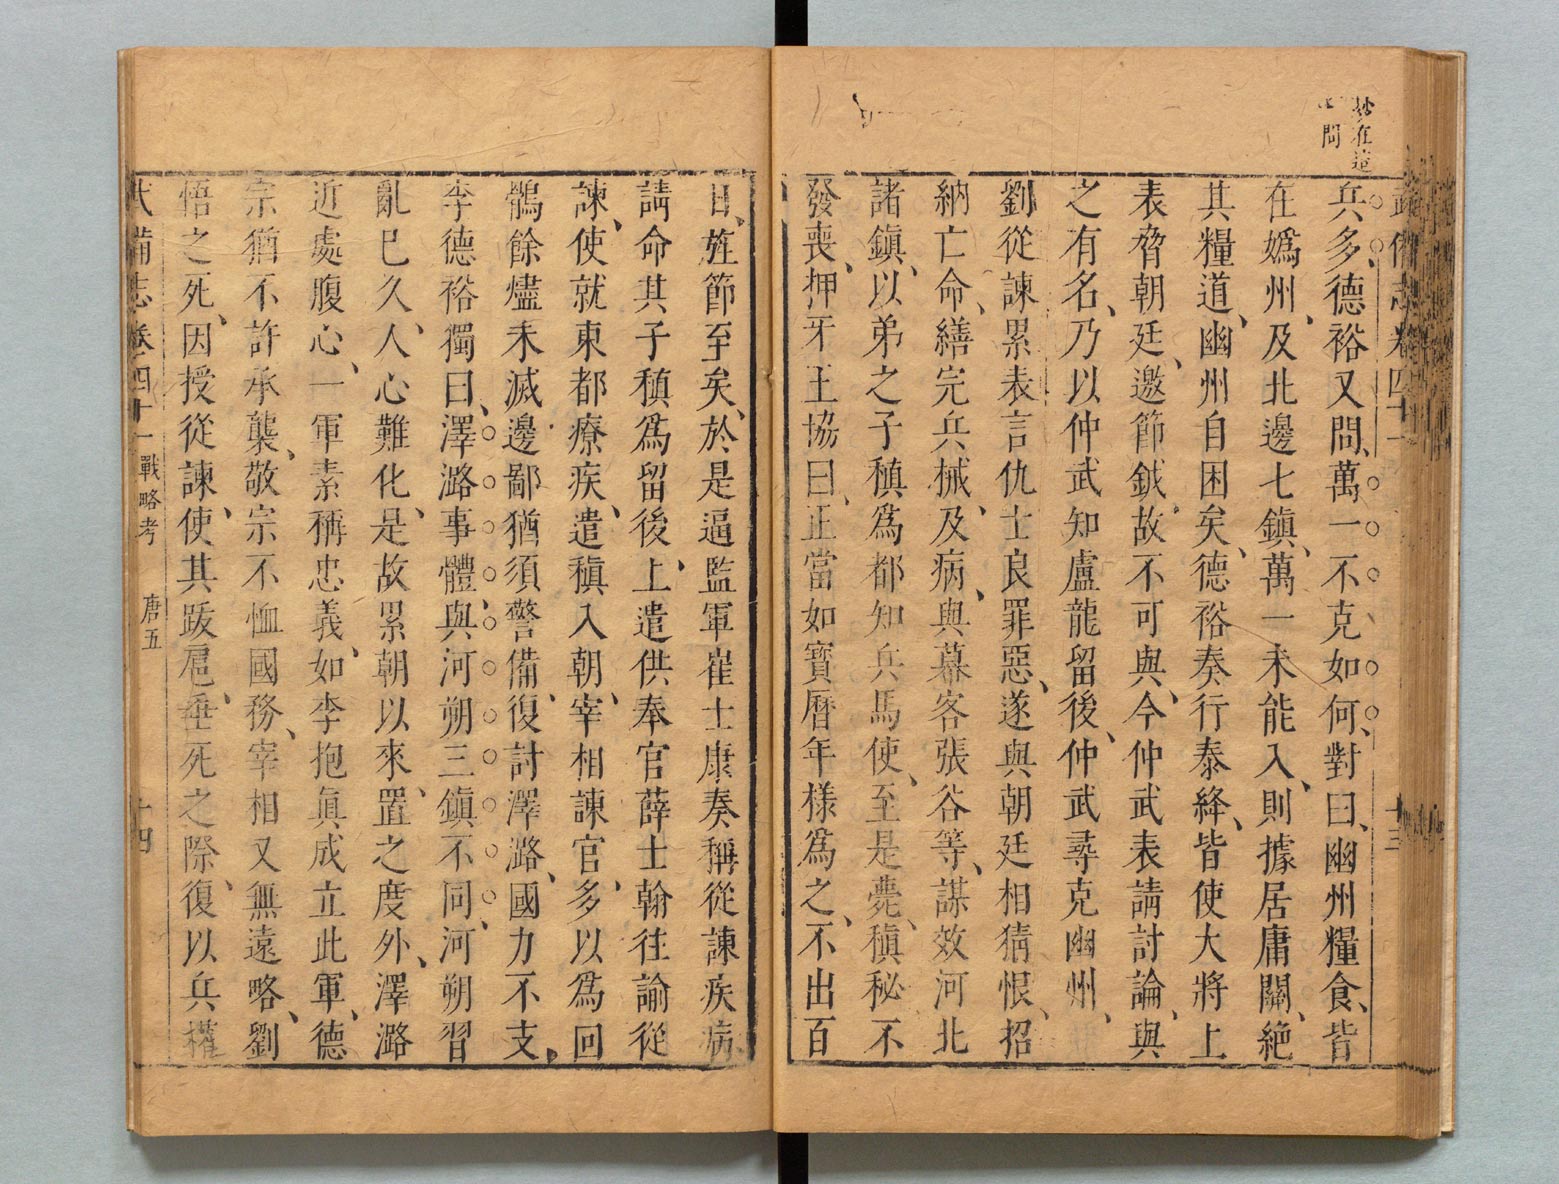 妙在這
問
武備志卷四十一
十三
兵多、德裕又問、萬一不克如何、對曰、幽州糧食、皆
在媯州、及北邊七鎮、萬一未能入、則據居庸關、絕
其糧道、幽州自困矣、德裕奏行泰絳、皆使大將上
表脅朝廷、邀節鉞、故不可與、今仲武表請討論、與
之有名、乃以仲武知盧龍留後、仲武尋克幽州、
劉從諫累表言仇士良罪惡、遂與朝廷相猜恨、招
納亡命、繕完兵械、及病、與幕客張谷等、謀效河北
諸鎮、以弟之子稹為都知兵馬使、至是薨、稹秘不
發喪、押牙王協曰、正當如寶曆年樣為之、不出百
日、旌節至矣、於是逼監軍崔士康奏稱從諫疾病
請命其子稹為留後、上遣供奉官薛士翰往諭從
諫、使就東都療疾、遣稹入朝、宰相諫官、多以為回
鶻餘燼未滅、邊鄙猶須警備、復討澤潞、國力不支、
李德裕獨曰、澤潞事體、與河朔三鎮不同、河朔習
亂已久、人心難化、是故累朝以來、置之度外、澤潞
近處腹心、一軍素稱忠義、如李抱眞成立此軍、德
宗猶不許承襲、敬宗不恤國務、宰相又無遠略、劉
悟之死、因授從諫、使其跋扈、垂死之際、復以兵權
武備志卷四十一 戰略考 唐五
十四